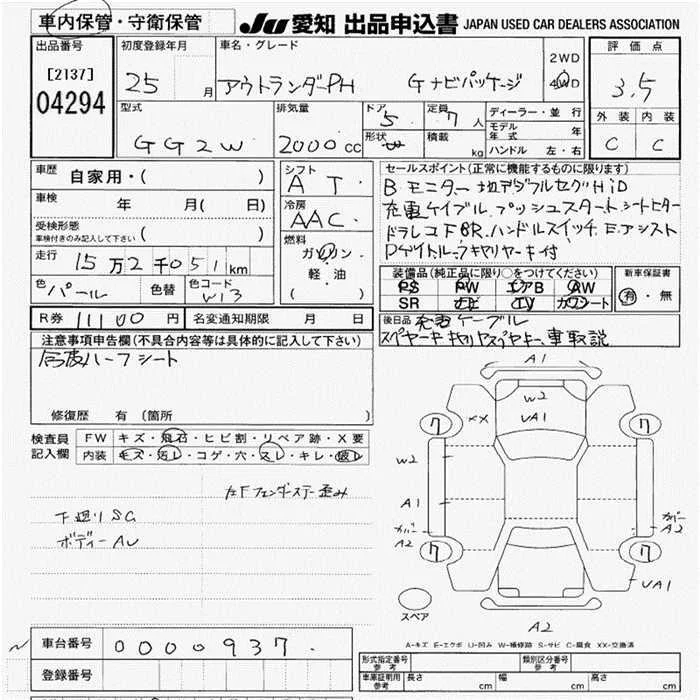 車内保管・守衛保管
JU 愛知 出品申込書 JAPAN USED CAR DEALERS ASSOCIATION
出品番号
[2137]
04294
初度登録年月
25 月
車名・グレード
アウトランダーPH Gナビパッケージ
2WD
4WD
評価点
3.5
外装 内装
C C
型式
GG2W
排気量
2000 cc
ドア
5
形状
定員
7 人
積載
kg
ディーラー・並行
モデル年式 年
ハンドル 左・右
車歴 自家用・( )
車検 年 月( 日)
受検形態
車検付きのみ記入して下さい ( )
走行 15万2千051km
色 パール 色替 色コード W13
シフト
AT
冷房
AAC
燃料
ガソリン
軽・油
( )
セールスポイント(正常に機能するものに限ります)
Bモニター 地デジフルセグHiD
充電ケイブル.プッシュスタート.シートヒター
ドラレコFBR.ハンドルスイッチ.E.アシスト
Dゲイトル
装備品(純正品に限り○をつけてください)
PS PW エアB AW
SR ナビ TV カワシート
新車保証書
有・無
R券 11100円 名変通知期限 月 日
後日品 充電ケーブル
スペヤーキ 車取説
注意事項申告欄(不具合内容等は具体的に記入して下さい)
ハーフシート
修復歴 有(箇所 )
検査員記入欄
FW キズ・飛石・ヒビ割・リペア跡・X要
内装 キズ・汚レ・コゲ・穴・スレ・キレ・破レ
左Fフェンダーステー歪み
下廻りSG
ボディーAU
A1
W2
UA1
XX
7
7
W2
A1
カバー
A2
カバー
A2
7
7
UA1
スペア
A2
A-キズ E-エクボ U-凹み W-補修跡 S-サビ C-腐食 XX-交換済
車台番号 0000937.
登録番号
形式指定番号 参考
類別区分番号 参考
車庫証明用 参考 長さ cm 幅 cm 高さ cm